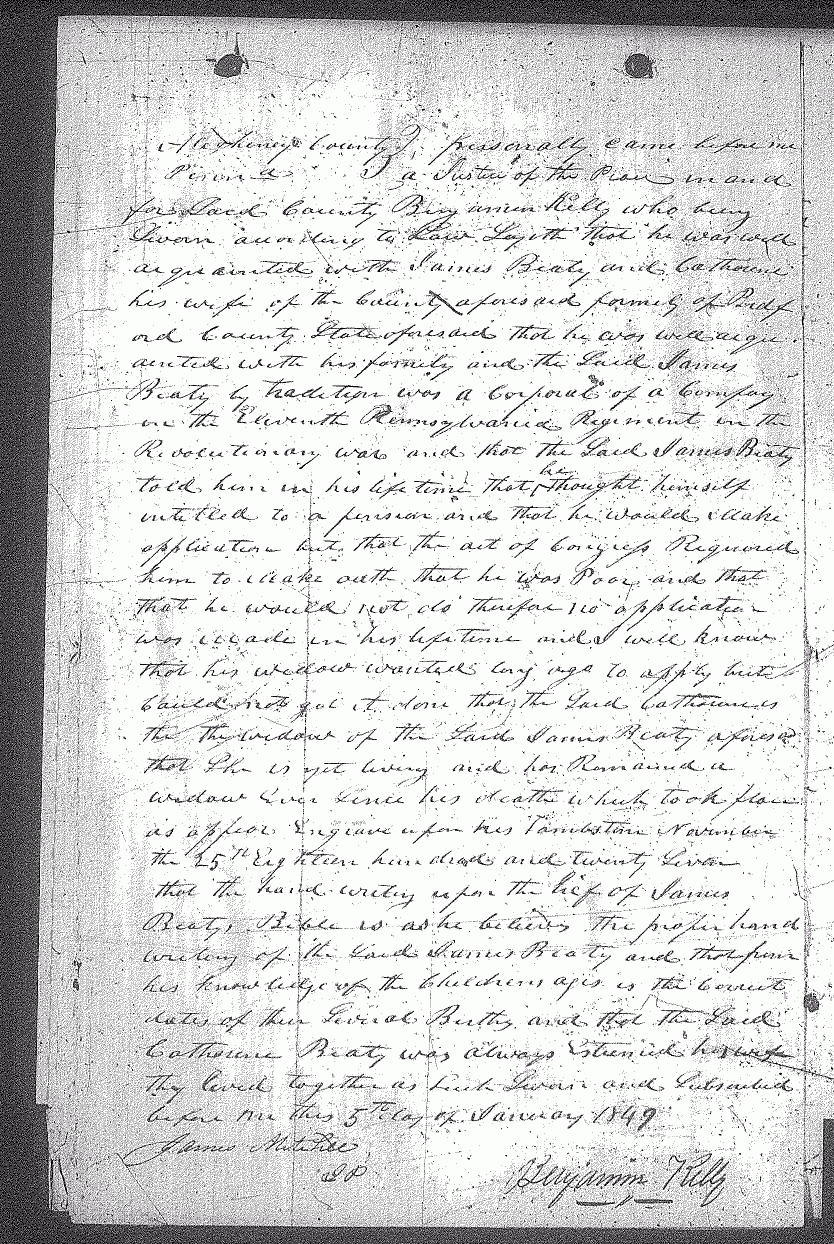 Allegheny County } personally came before me
Penna } a Justice of the Peace in and
for Said County Benjamin Kelly who being
Sworn according to Law Sayeth that he was well
acquainted with James Beaty and Catherine
his wife of the County aforesaid formerly of Bedf
ord County State aforesaid that he was well acqu
ainted with his family and the Said James
Beaty by tradition was a Corporal of a Company
in the Eleventh Pennsylvania Regiment in the
Revolutionary war and that the Said James Beaty
told him in his lifetime that he thought himself
intitled to a pension and that he would Make
application but that the act of Congress Required
him to Make oath that he was Poor and that
that he would not do therefor no application
was made in his lifetime and I well know
that his widow wanted long ago to apply but
Could not get it done that the Said Catherine is
the widow of the Said James Beaty aforesd
that She is yet living and has Remained a
widow Ever Since his death which took place
as appear Engrave upon his Tombstone November
the 25th Eighteen hundred and twenty Seven
that the hand writing upon the lief of James
Beatys Bible is as he believes the proper hand
writing of the Said James Beaty and that from
his knowledge of the Childrens ages is the Correct
dates of their Several Births and that the Said
Catherine Beaty was always Esteemed his wife
they lived together as Such Sworn and Subscribed
before me this 5th day of January 1849
James Mitchell
JP
Benjamin Kelly